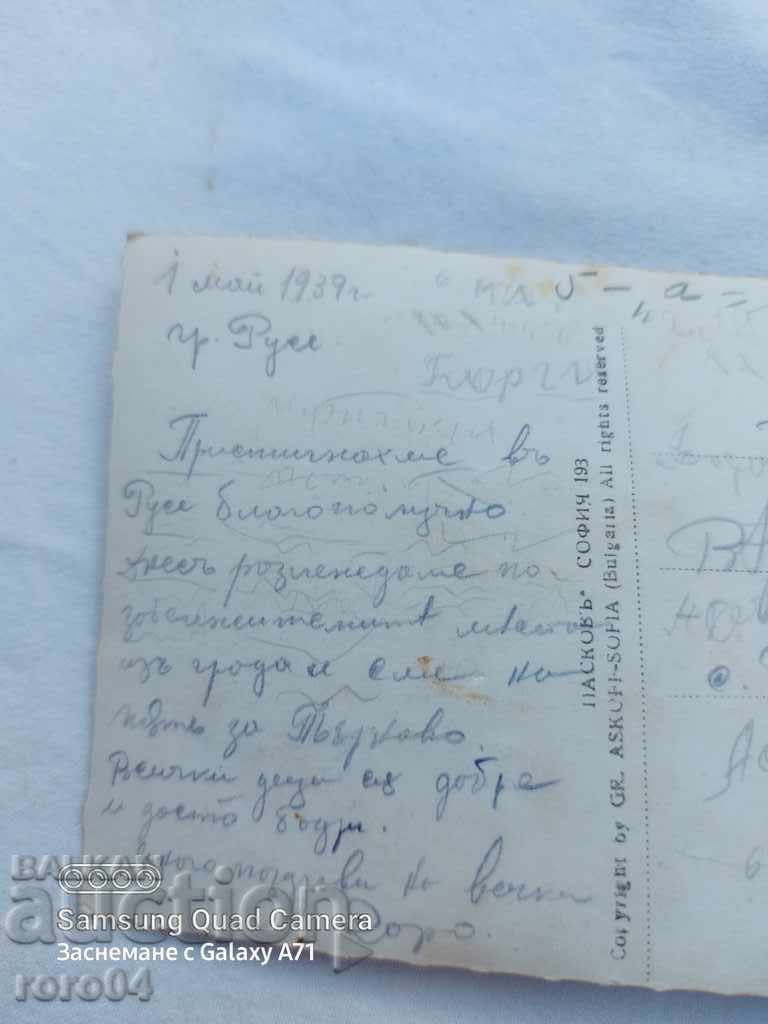 1 май 1939 г.
гр. Русе.
кл. 5 - "а"
Георги
Пристигнахме въ
Русе благополучно
днесъ розглеждаме по-
забележителнитѣ места
изъ града и сме на
пѫть за Търново.
Всички деца сѫ добре
и доста бодри.
поздрави на всички
ПАСКОВЪ" СОФИЯ 193
Copyright by GR. ASKOFF-SOFIA (Bulgaria) All rights reserved
БАЛКАН
Аукстион
Samsung Quad Camera
Заснемане с Galaxy A71
roro04